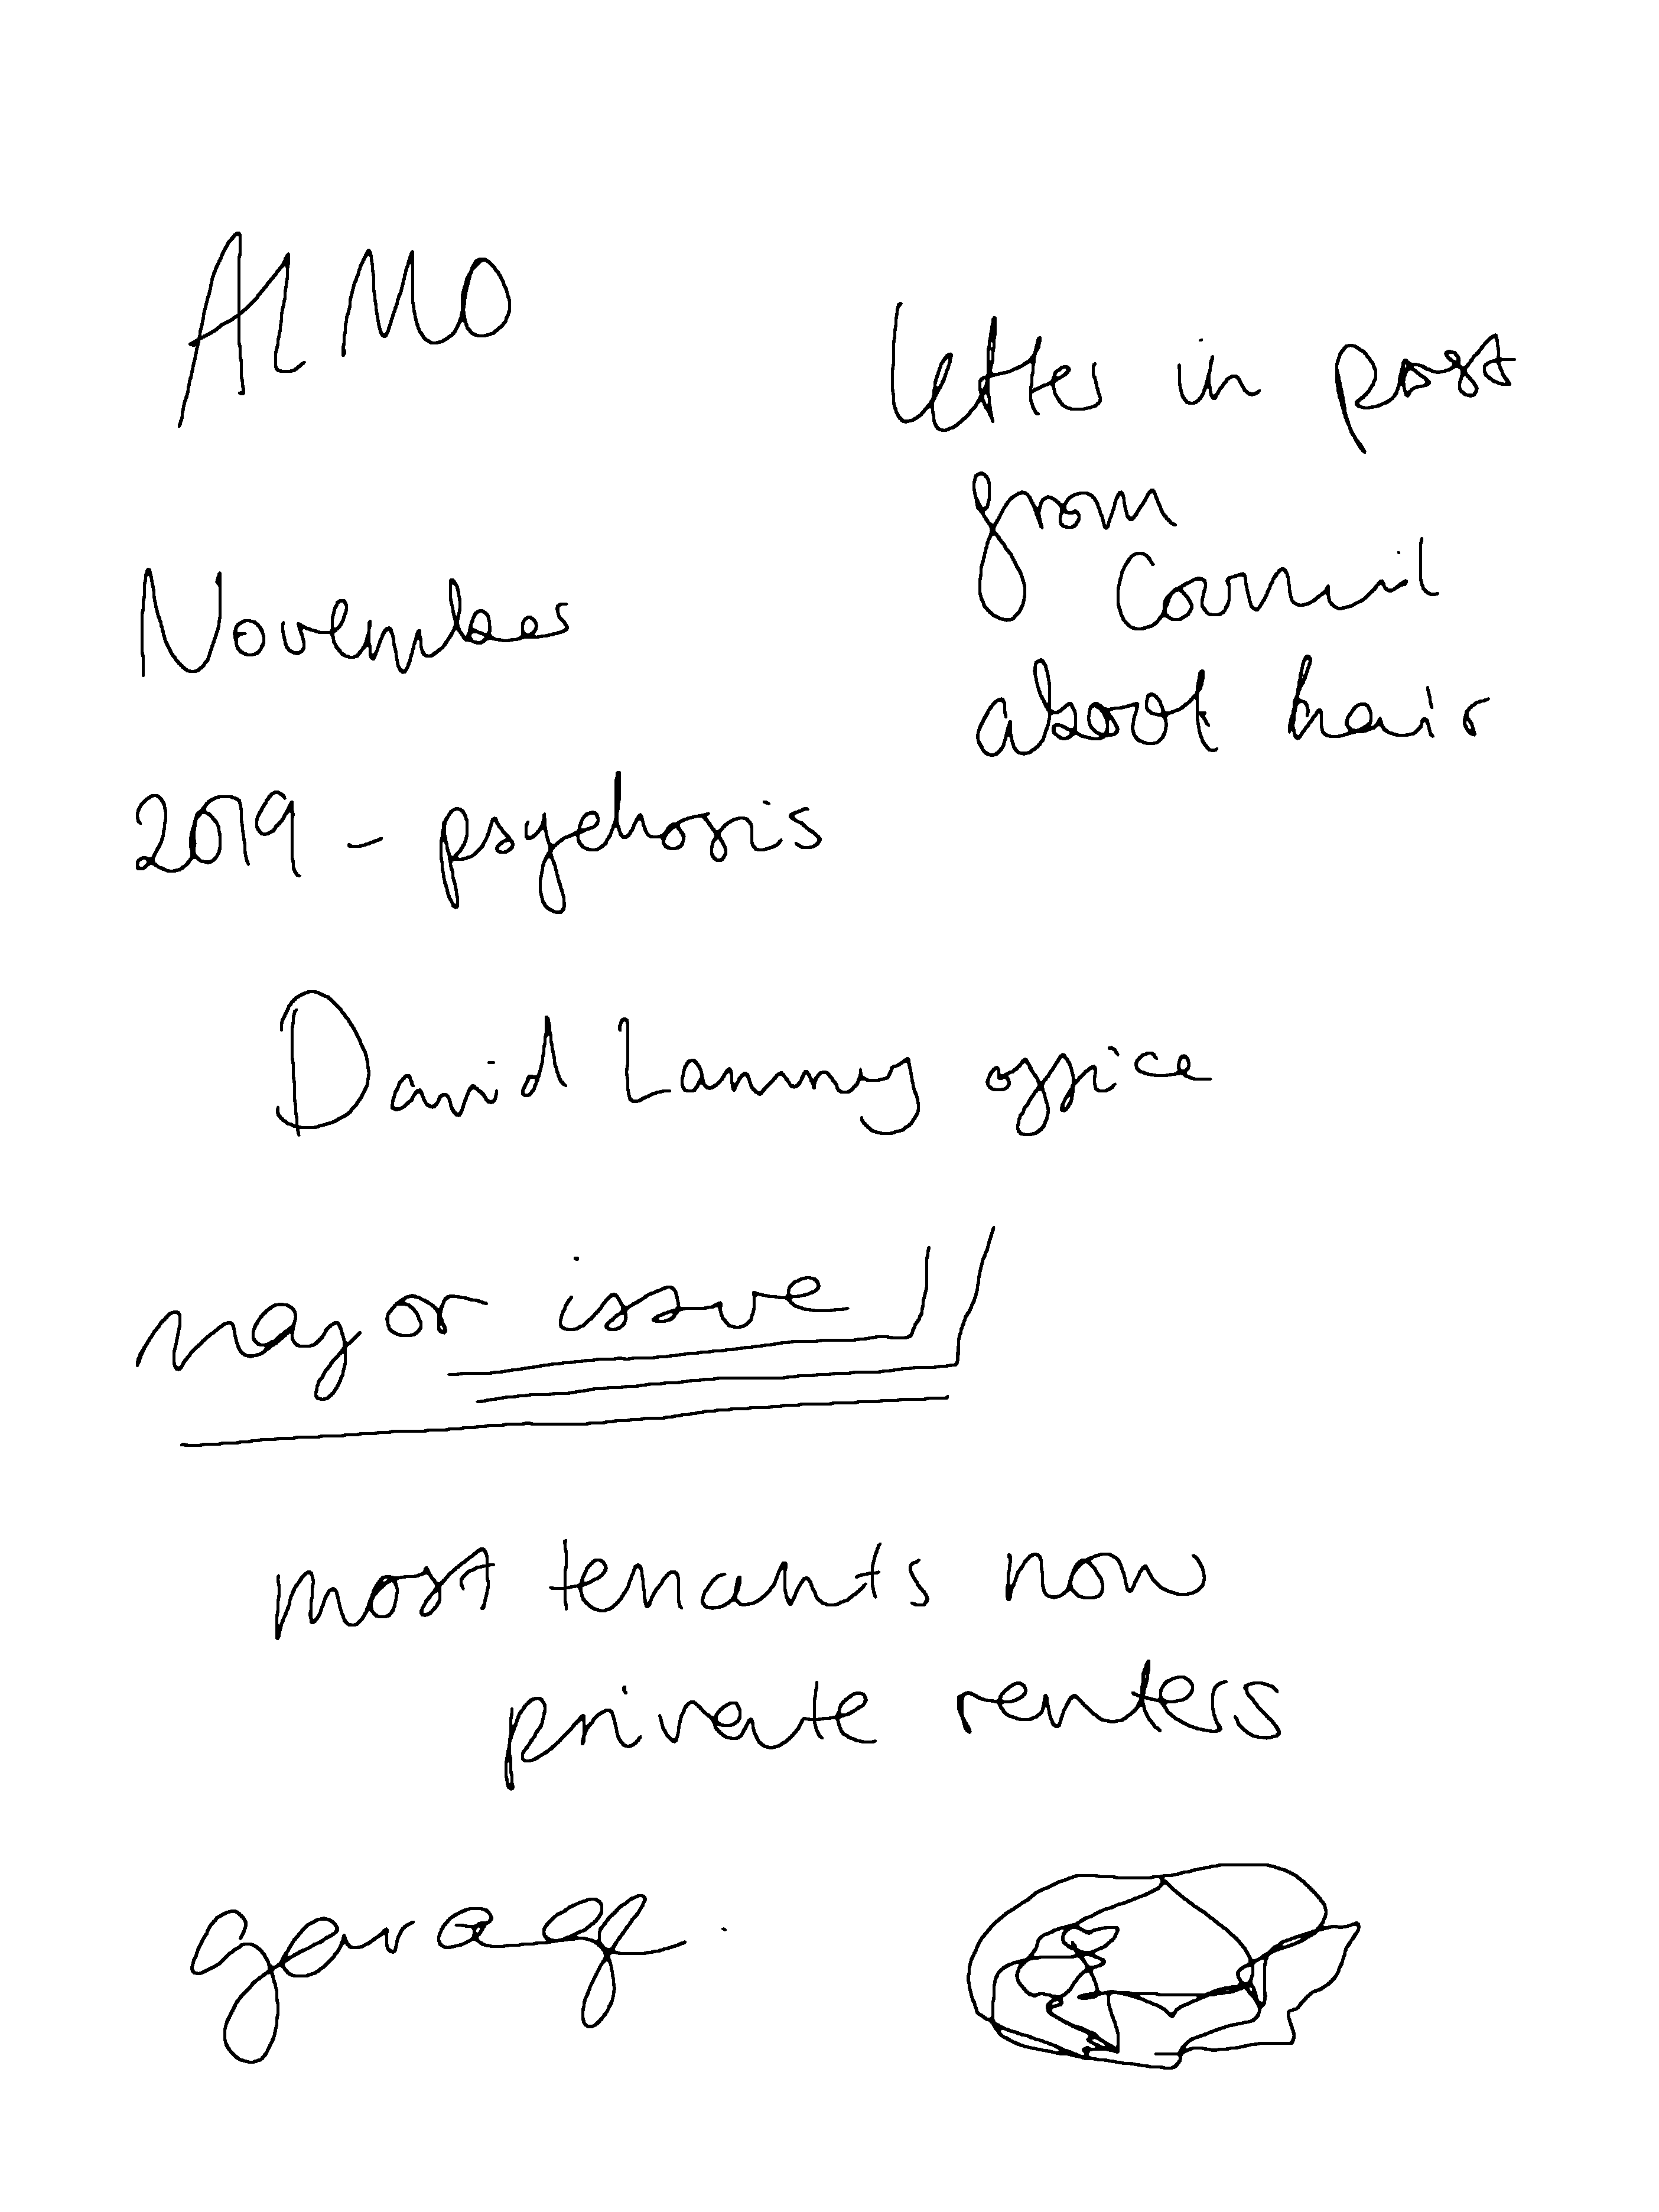 ALMO
letter in post
from
Council
November
about hair
2019 - psychosis
David Lammy office
major issue
most tenants now
private renters
garage.